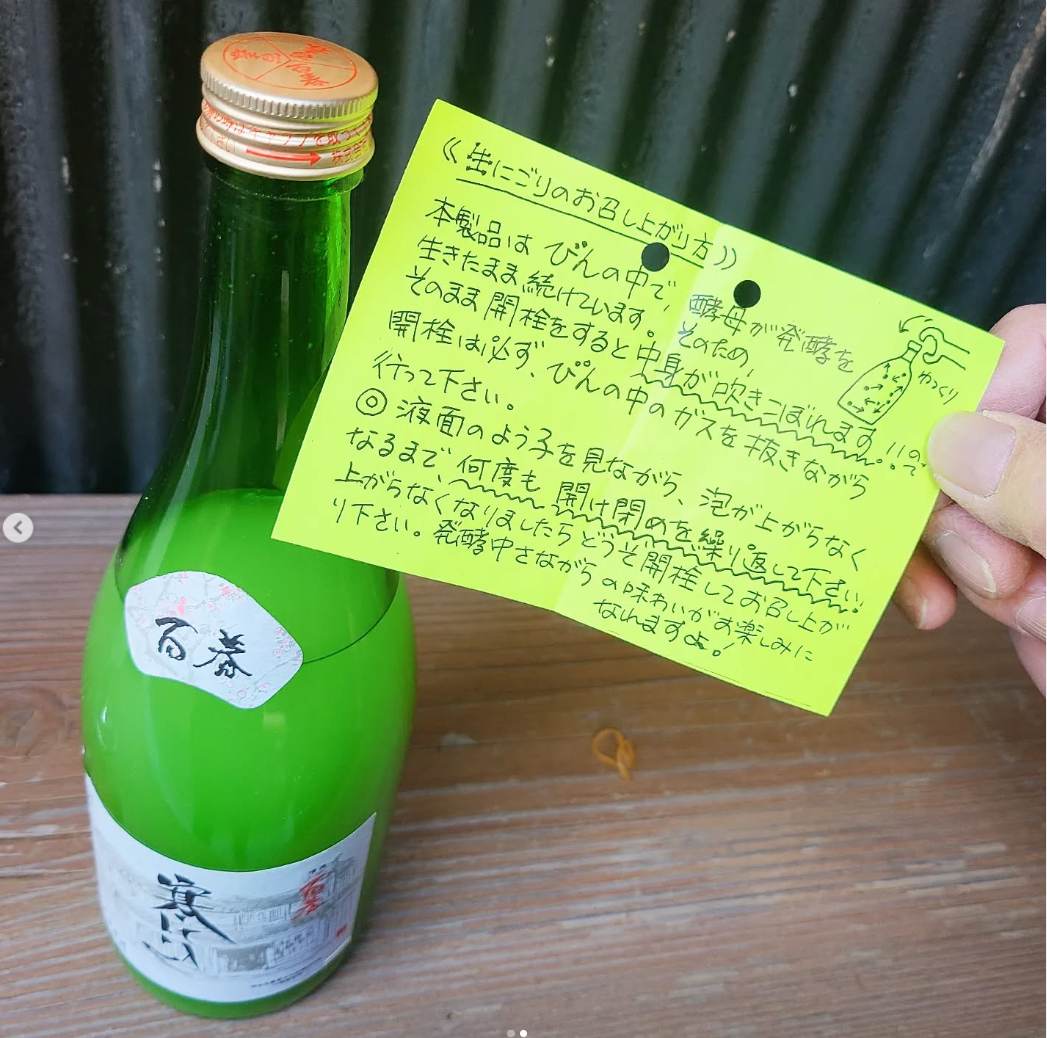 《生にごりのお召し上がり方》
本製品は びんの中で、酵母が発酵を
生きたまま続けています。そのため、
そのまま開栓をすると中身が吹きこぼれます!!ので
開栓は必ず、びんの中のガスを抜きながら
行って下さい。
◎液面のよう子を見ながら、泡が上がらなく
なるまで、何度も開け閉めを繰り返して下さい。
上がらなくなりましたらどうぞ開栓してお召し上が
り下さい。発酵中さながらの味わいがお楽しみに
なれますよ!
ゆっくり
百春
寒仕込